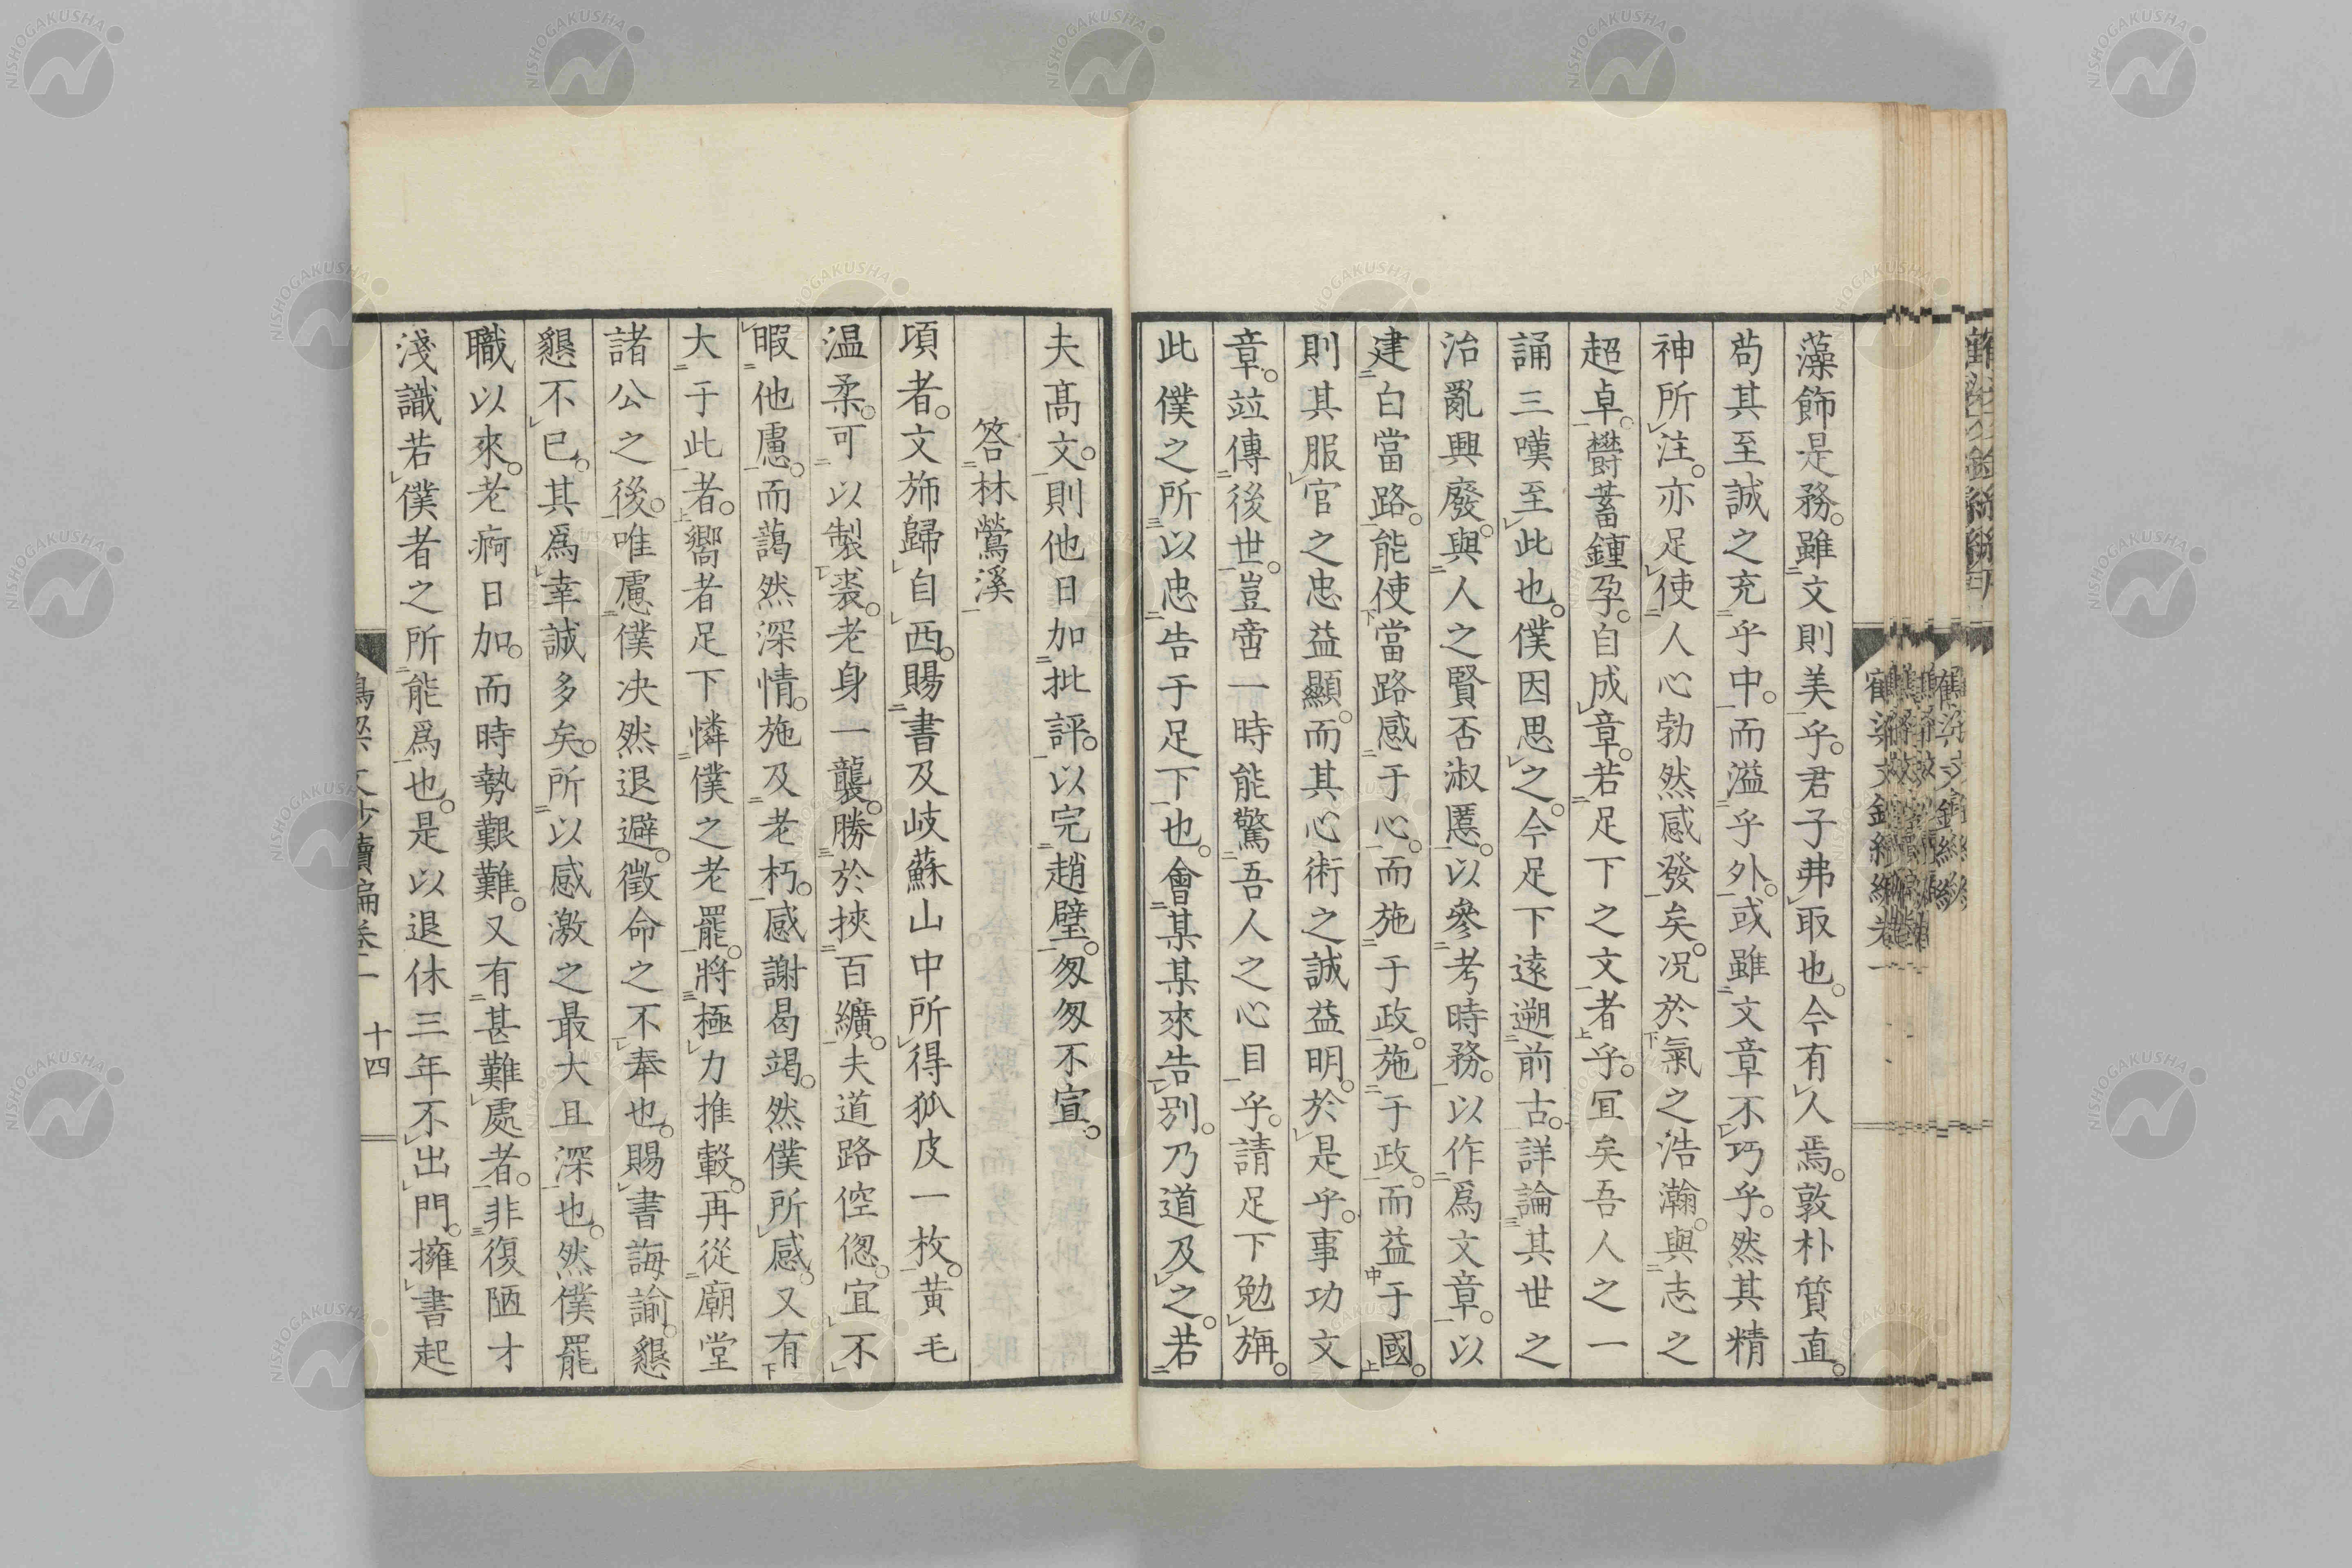 藻飾是務。雖文則美乎。君子弗取也。今有人焉。敦朴質直。
苟其至誠之充乎中。而溢乎外。或雖文章不巧乎。然其精
神所注。亦足使人心勃然感發矣。况於氣之浩瀚。與志之
超卓。欝蓄鍾孕。自成章。若足下之文者乎。冝矣吾人之一
誦三嘆至此也。僕因思之。今足下遠遡前古。詳論其世之
治亂興廢。與人之賢否淑慝。以參考時務。以作爲文章。以
建白當路。能使當路感于心。而施于政。施于政。而益于國。
則其服官之忠益顯。而其心術之誠益明。於是乎。事功文
章。竝傳後世。豈啻一時能驚吾人之心目乎。請足下勉旃。
此僕之所以忠告于足下也。會某某來告別。乃道及之。若
夫高文。則他日加批評。以完趙璧。匆匆不宣。
答林鶯溪
項者。文斾歸自西。賜書及岐蘇山中所得狐皮一枚。黄毛
温柔。可以製裘。老身一襲。勝於挾百纊。夫道路倥偬。宜不
暇他慮。而藹然深情。施及老朽。感謝曷竭。然僕所感又有
大于此者。嚮者足下憐僕之老罷。將極力推轂。再從廟堂
諸公之後。唯慮僕决然退避。徵命之不奉也。賜書誨諭。懇
懇不已。其爲幸誠多矣。所以感激之最大且深也。然僕罷
職以來。老痾日加。而時勢艱難。又有甚難處者。非復陋才
淺識若僕者之所能爲也。是以退休三年。不出門。擁書起
十四